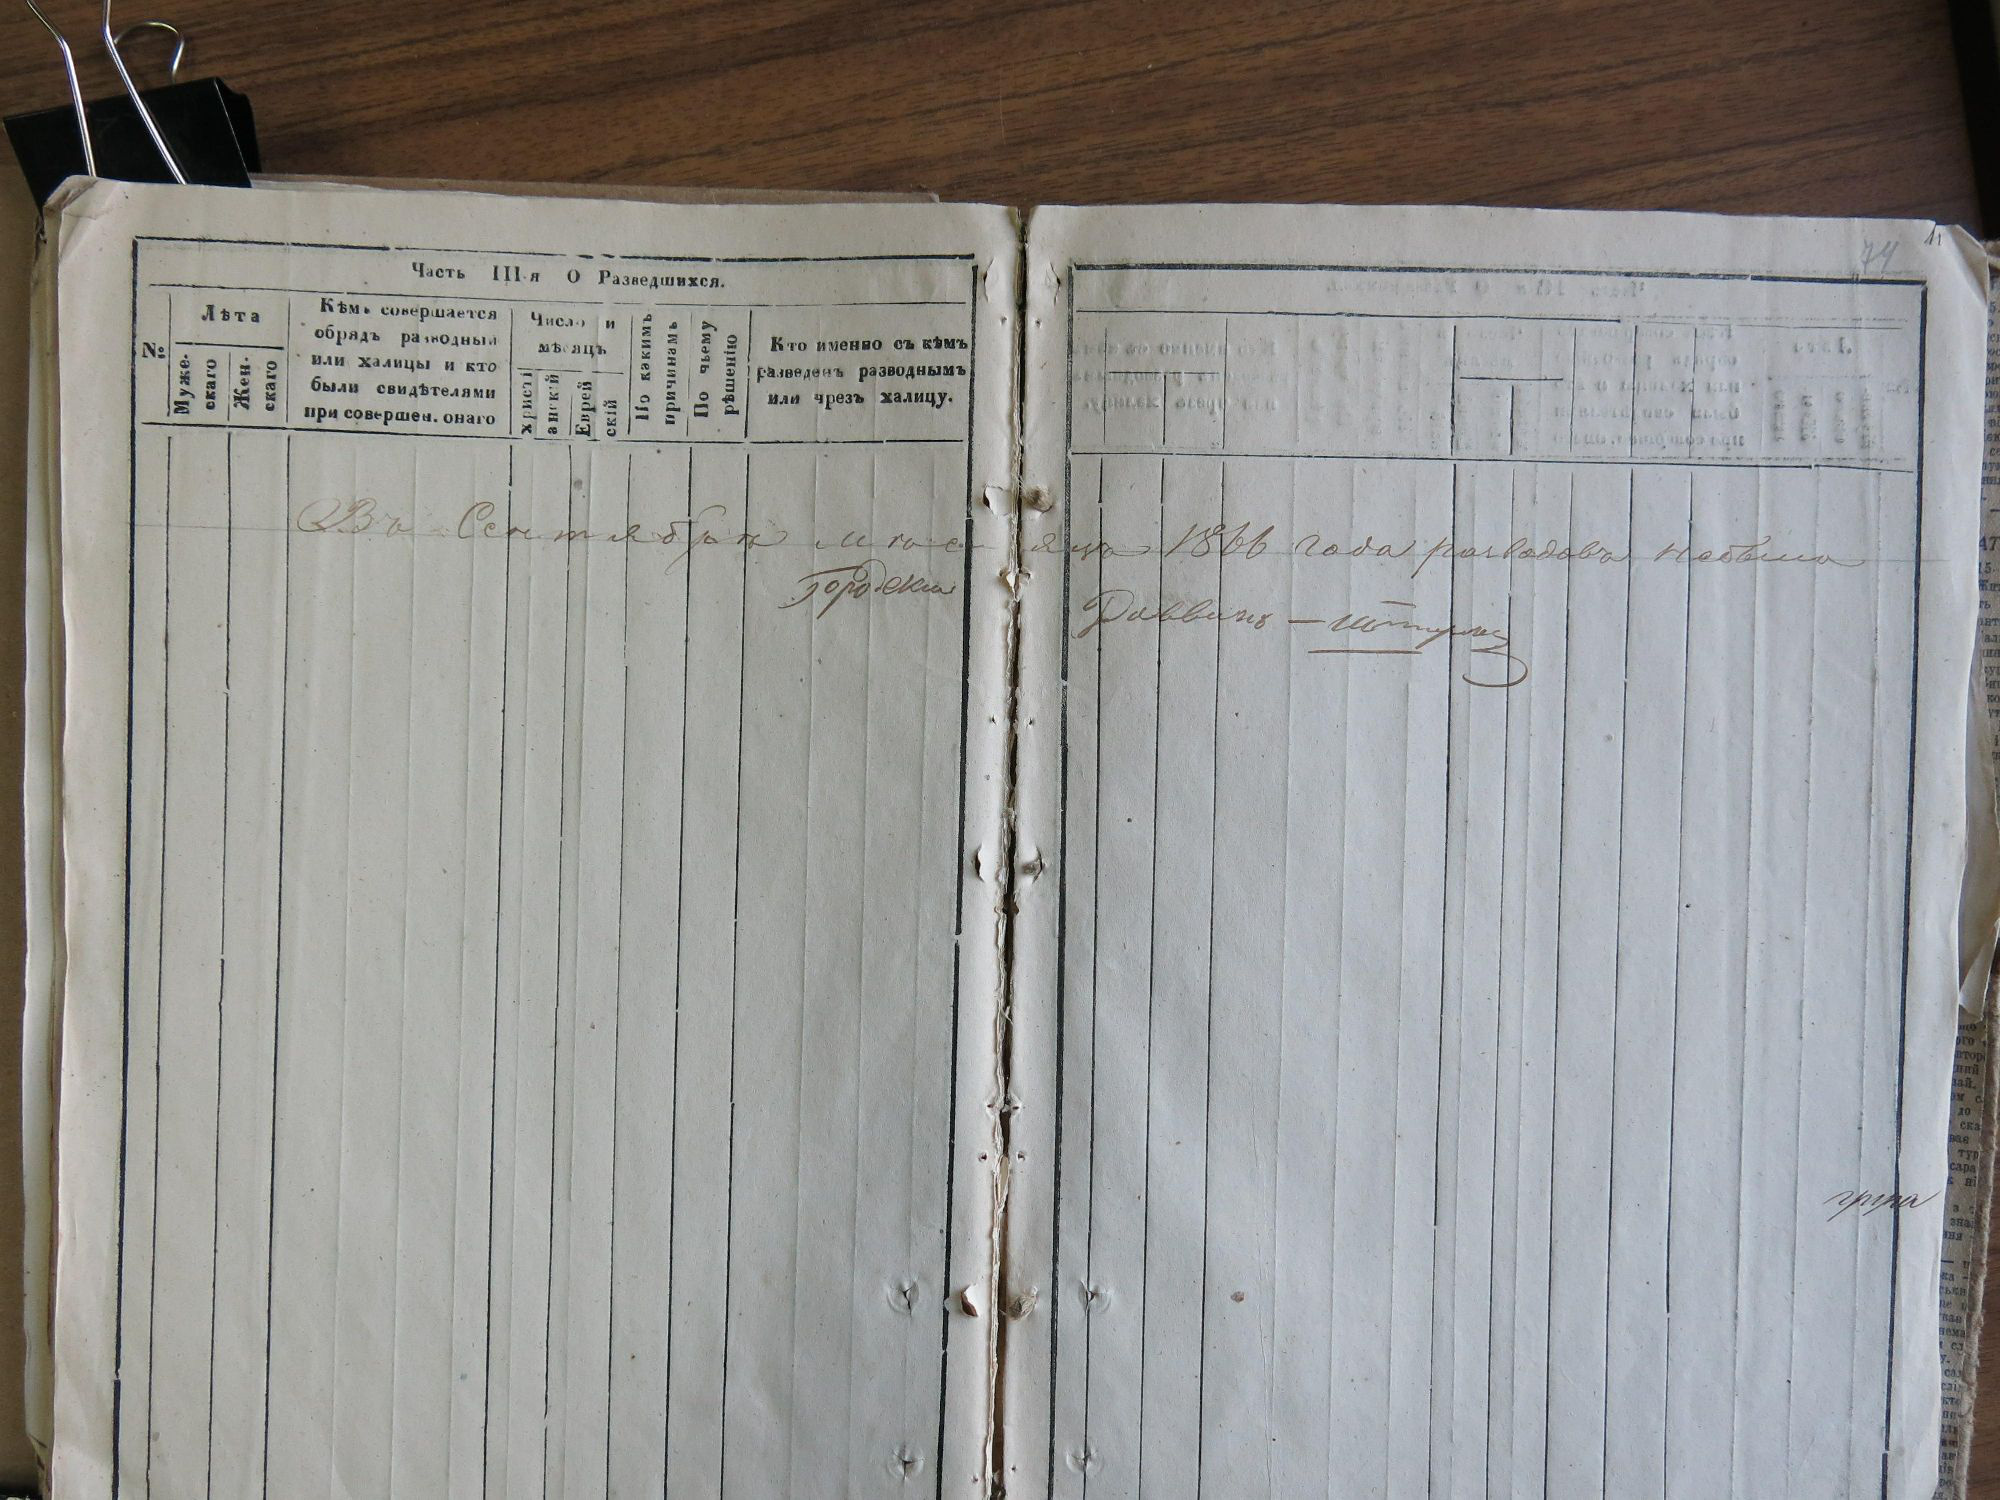 Часть III-я О Разведшихся.
№
Лѣта
Муже-
скаго
Жен-
скаго
Кѣмъ совершается
обрядъ разводный
или халицы и кто
были свидѣтелями
при совершен. онаго
Число и
мѣсяцъ
христі
анскій
Еврей
скій
По какимъ
причинамъ
По чьему
рѣшенію
Кто именно съ кѣмъ
разведенъ разводнымъ
или чрезъ халицу.
74
11
Въ Сентябрѣ мѣсяцѣ 1866 года разводовъ небыло
Городской Раввинъ —